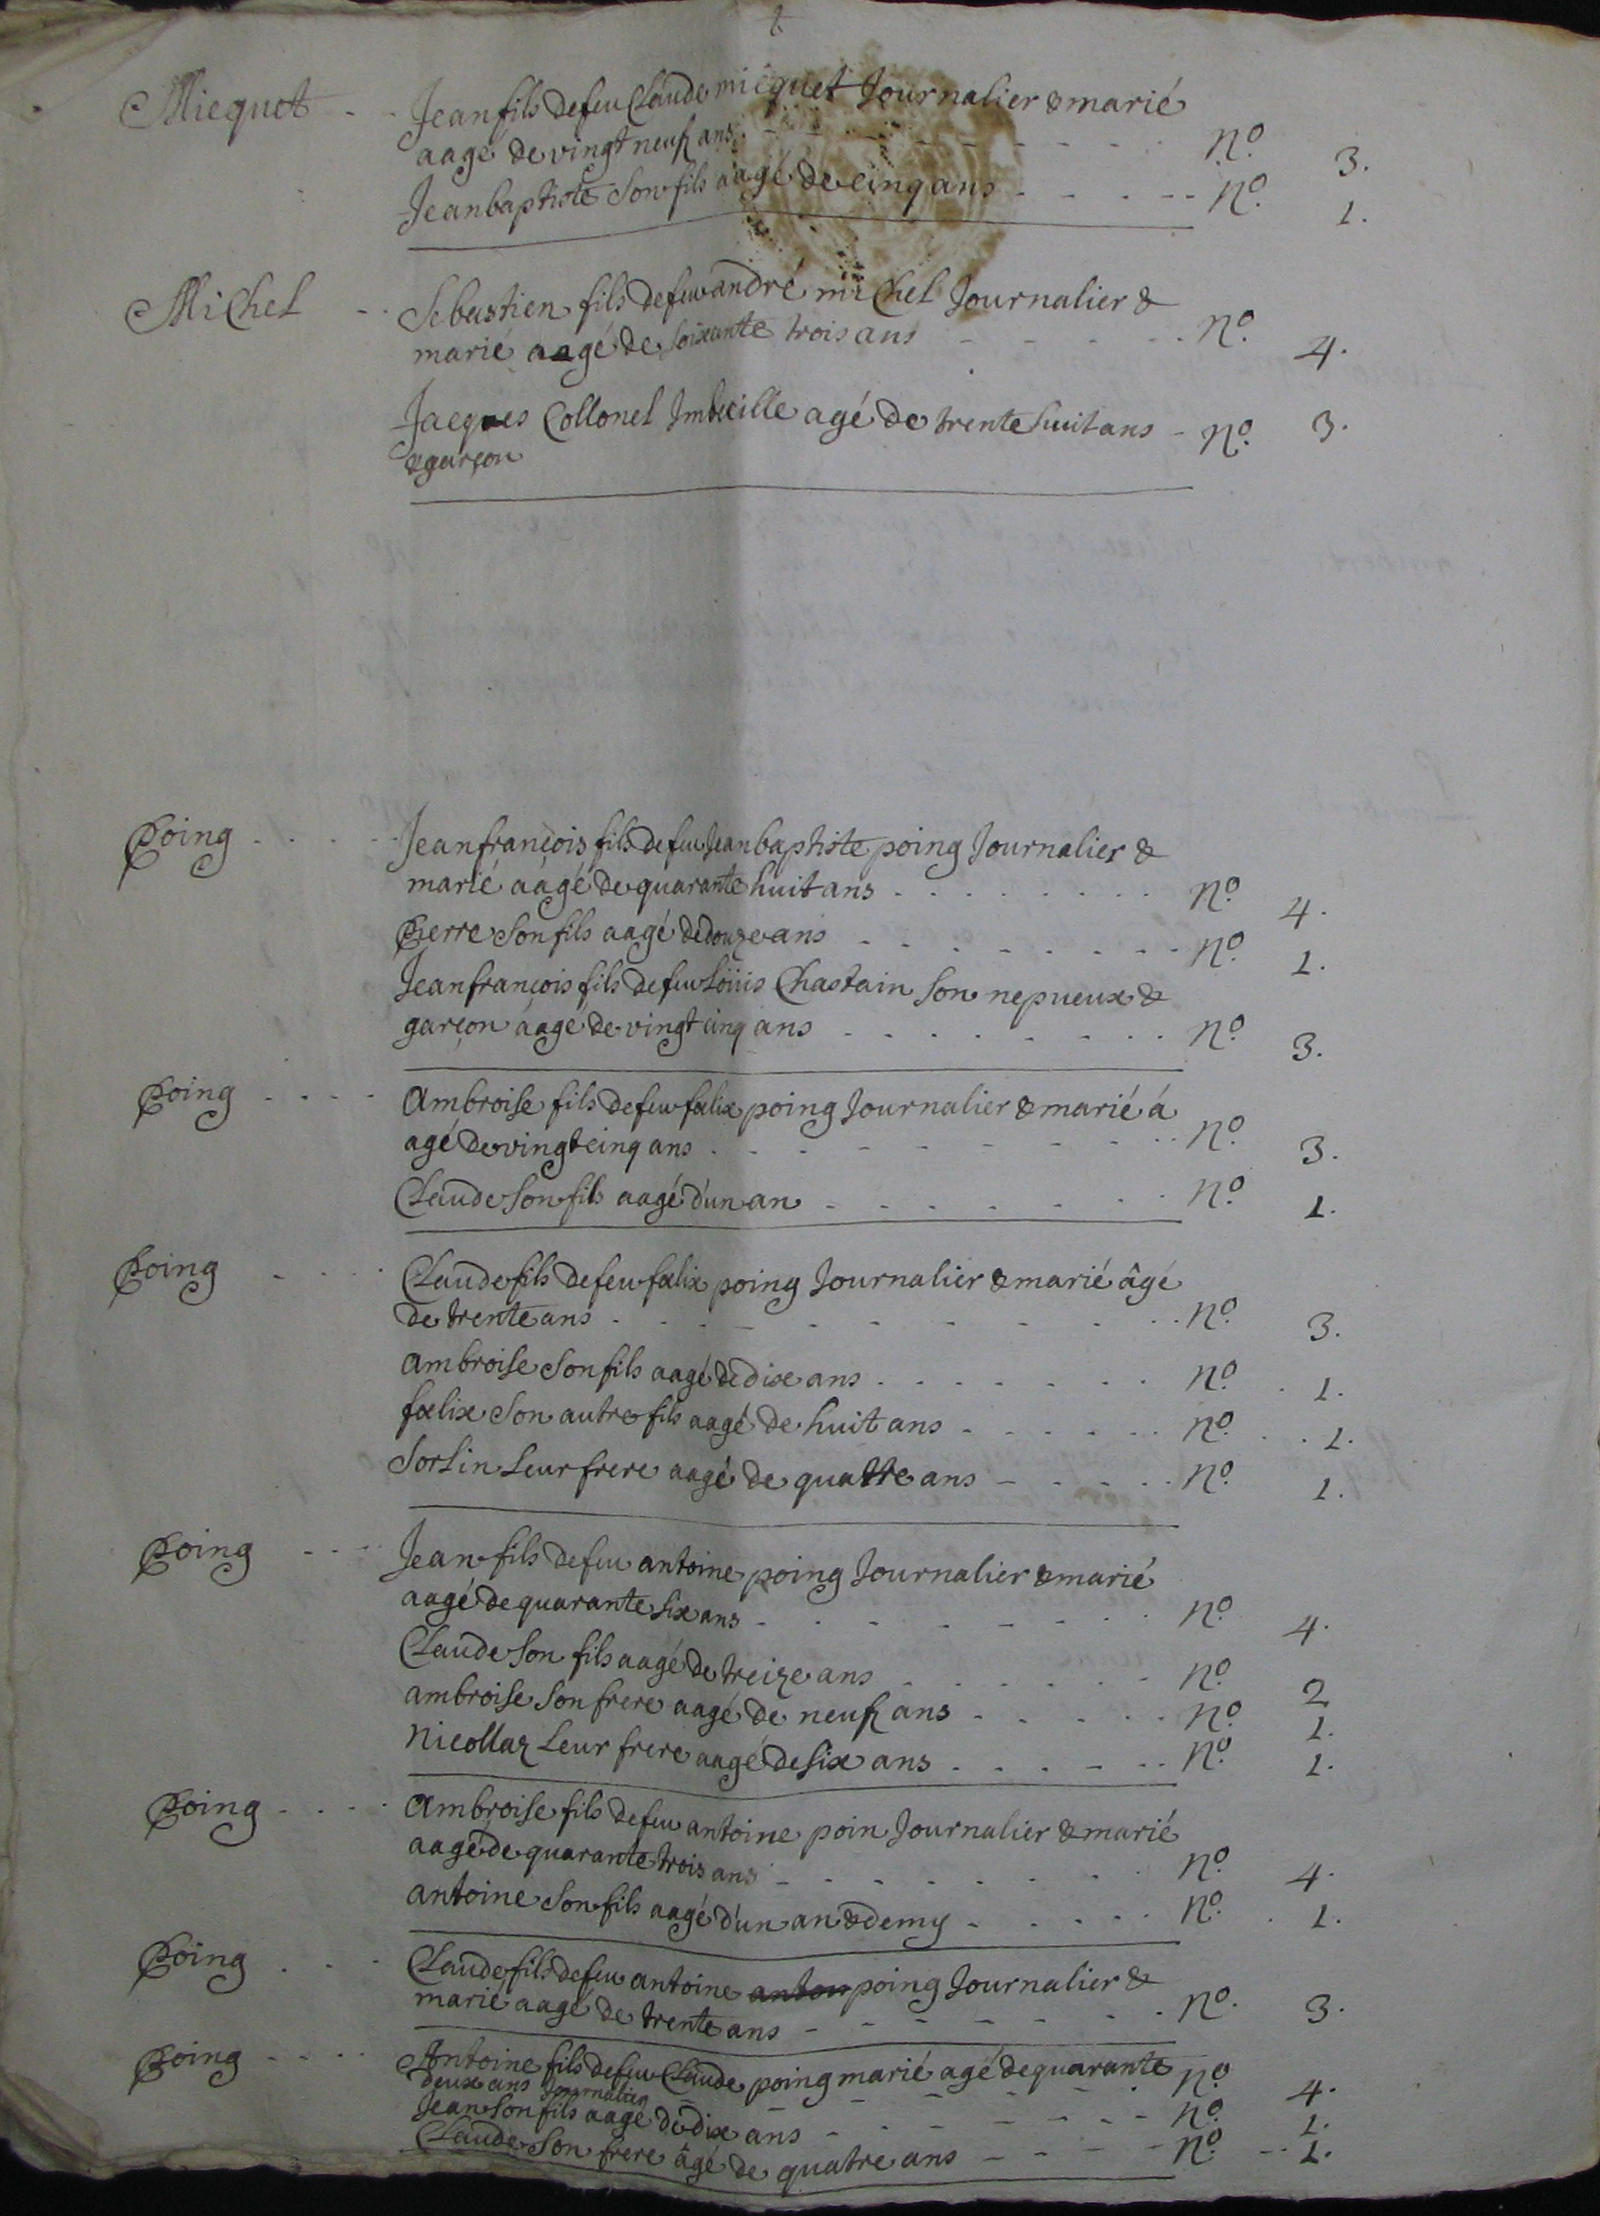 Micquet - - Jean fils de feu Claude micquet Journalier & marié
aagé de vingt neuf ans - - - - - - - no. 3.
Jean baptiste Son fils aagé de cinq ans - - - - - no. 1.
Michel - - Sebastien fils de feu andré michel Journalier &
marié aagé de Soixante trois ans - - - - - no. 4.
Jacques Collonel Imbecille agé de trente huit ans - no. 3.
& garçon
Poing - - - - Jean françois fils de feu Jean baptiste poing Journalier &
marié aagé de quarante huit ans - - - - - - - no. 4.
Pierre Son fils aagé de douze ans - - - - - - - no. 1.
Jean françois fils de feu Loüis Chastain Son nepueux &
garçon aagé de vingt cinq ans - - - - - - - no. 3.
Poing - - - - Ambroise fils de feu fœlix poing Journalier & marié á
agé de vingt cinq ans - - - - - - - - no. 3.
Claude Son fils aagé d'un an - - - - - - - no. 1.
Poing - - - Claude fils de feu fœlix poing Journalier & marié âgé
de trente ans - - - - - - - - - - no. 3.
ambroise Son fils aagé de dix ans - - - - - - - no. 1.
fœlix Son autre fils aagé de huit ans - - - - - - no. 1.
Sorlin Leur frere aagé de quattre ans - - - - - no. 1.
Poing - - - - Jean fils de feu antoine poing Journalier & marié
aagé de quarante Six ans - - - - - - - - no. 4.
Claude Son fils aagé de treize ans - - - - - - no. 2
ambroise Son frere aagé de neuf ans - - - - - no. 1.
Nicollaz Leur frere aagé de Six ans - - - - - - no. 1.
Poing - - - - Ambroise fils de feu antoine poin Journalier & marié
aagé de quarante trois ans - - - - - - - - no. 4.
antoine Son fils aagé d'un an & demy - - - - - no. 1.
Poing - - - Claude fils de feu antoine poing Journalier &
marié aagé de trente ans - - - - - - - - no. 3.
Poing - - - - Antoine fils de feu Claude poing marié agé de quarante no. 4.
deux ans Journalier - - - - - - - -
Jean Son fils aagé de dix ans - - - - - - - no. 1.
Claude Son frere âgé de quatre ans - - - - no. 1.